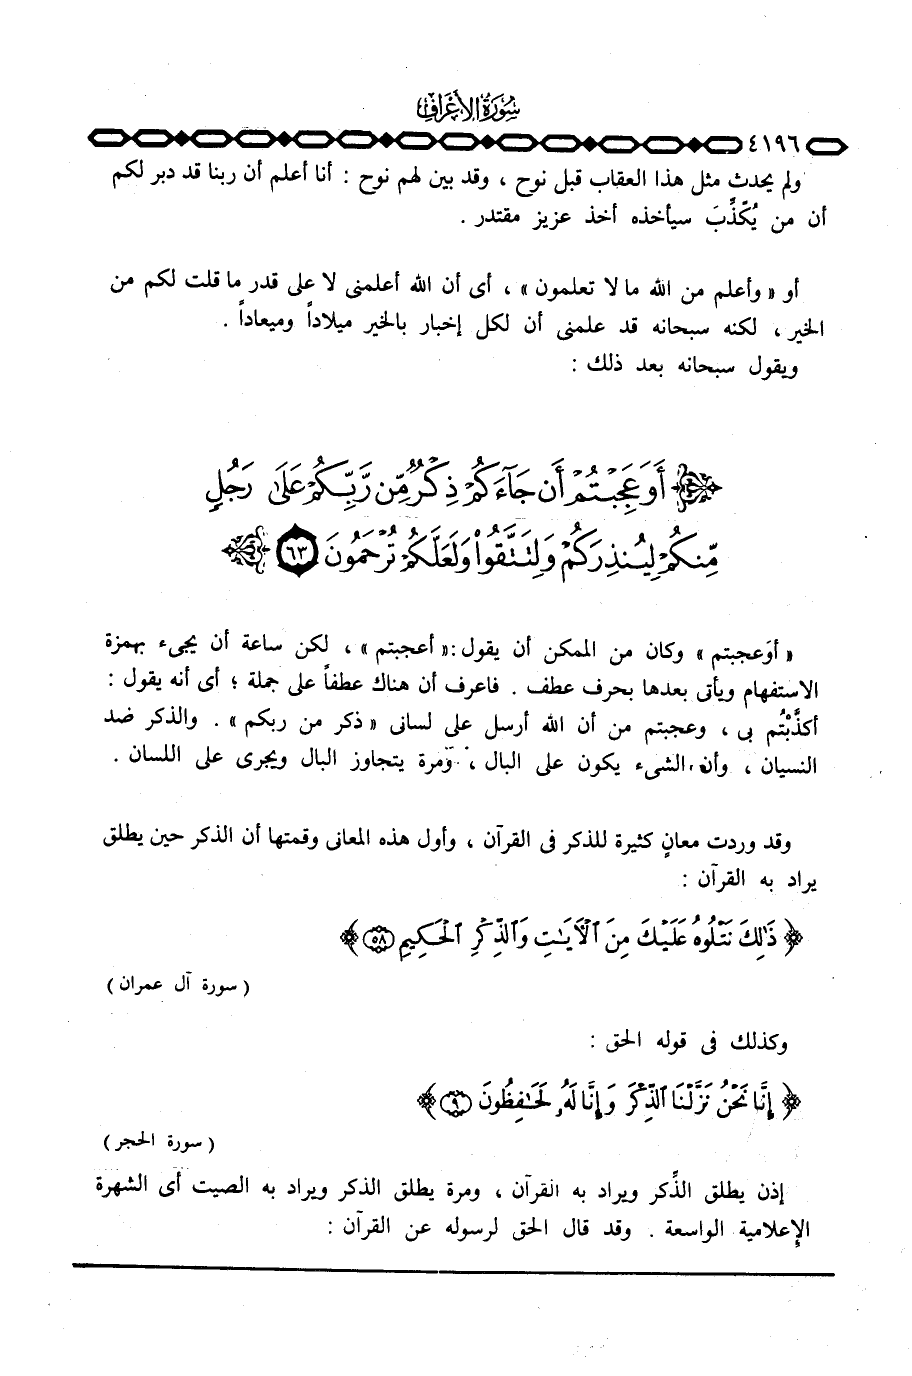 سُورَةُ الأَعْرَافِ
٤١٩٦
ولم يحدث مثل هذا العقاب قبل نوح ، وقد بين لهم نوح : أنا أعلم أن ربنا قد دبر لكم
أن من يُكَذِّبَ سيأخذه أخذ عزيز مقتدر .
أو « وأعلم من الله ما لا تعلمون » ، أى أن الله أعلمنى لا على قدر ما قلت لكم من
الخير ، لكنه سبحانه قد علمنى أن لكل إخبار بالخير ميلاداً وميعاداً .
ويقول سبحانه بعد ذلك :
﴿ أَوَعَجِبْتُمْ أَن جَآءَكُمْ ذِكْرٌ مِّن رَّبِّكُمْ عَلَىٰ رَجُلٍ
مِّنكُمْ لِيُنذِرَكُمْ وَلِتَتَّقُوا۟ وَلَعَلَّكُمْ تُرْحَمُونَ ٦٣ ﴾
« أوَعجبتم » وكان من الممكن أن يقول : « أعجبتم » ، لكن ساعة أن يجىء بهمزة
الاستفهام ويأتى بعدها بحرف عطف . فاعرف أن هناك عطفاً على جملة ؛ أى أنه يقول :
أكذَّبْتُم بى ، وعجبتم من أن الله أرسل على لسانى « ذكر من ربكم » . والذكر ضد
النسيان ، وأن الشىء يكون على البال ، ومرة يتجاوز البال ويجرى على اللسان .
وقد وردت معانٍ كثيرة للذكر فى القرآن ، وأول هذه المعانى وقمتها أن الذكر حين يطلق
يراد به القرآن :
﴿ ذَٰلِكَ نَتْلُوهُ عَلَيْكَ مِنَ ٱلْآيَـٰتِ وَٱلذِّكْرِ ٱلْحَكِيمِ ٥٨ ﴾
( سورة آل عمران )
وكذلك فى قوله الحق :
﴿ إِنَّا نَحْنُ نَزَّلْنَا ٱلذِّكْرَ وَإِنَّا لَهُۥ لَحَـٰفِظُونَ ٩ ﴾
( سورة الحجر )
إذن يطلق الذِّكر ويراد به القرآن ، ومرة يطلق الذكر ويراد به الصيت أى الشهرة
الإعلامية الواسعة . وقد قال الحق لرسوله عن القرآن :